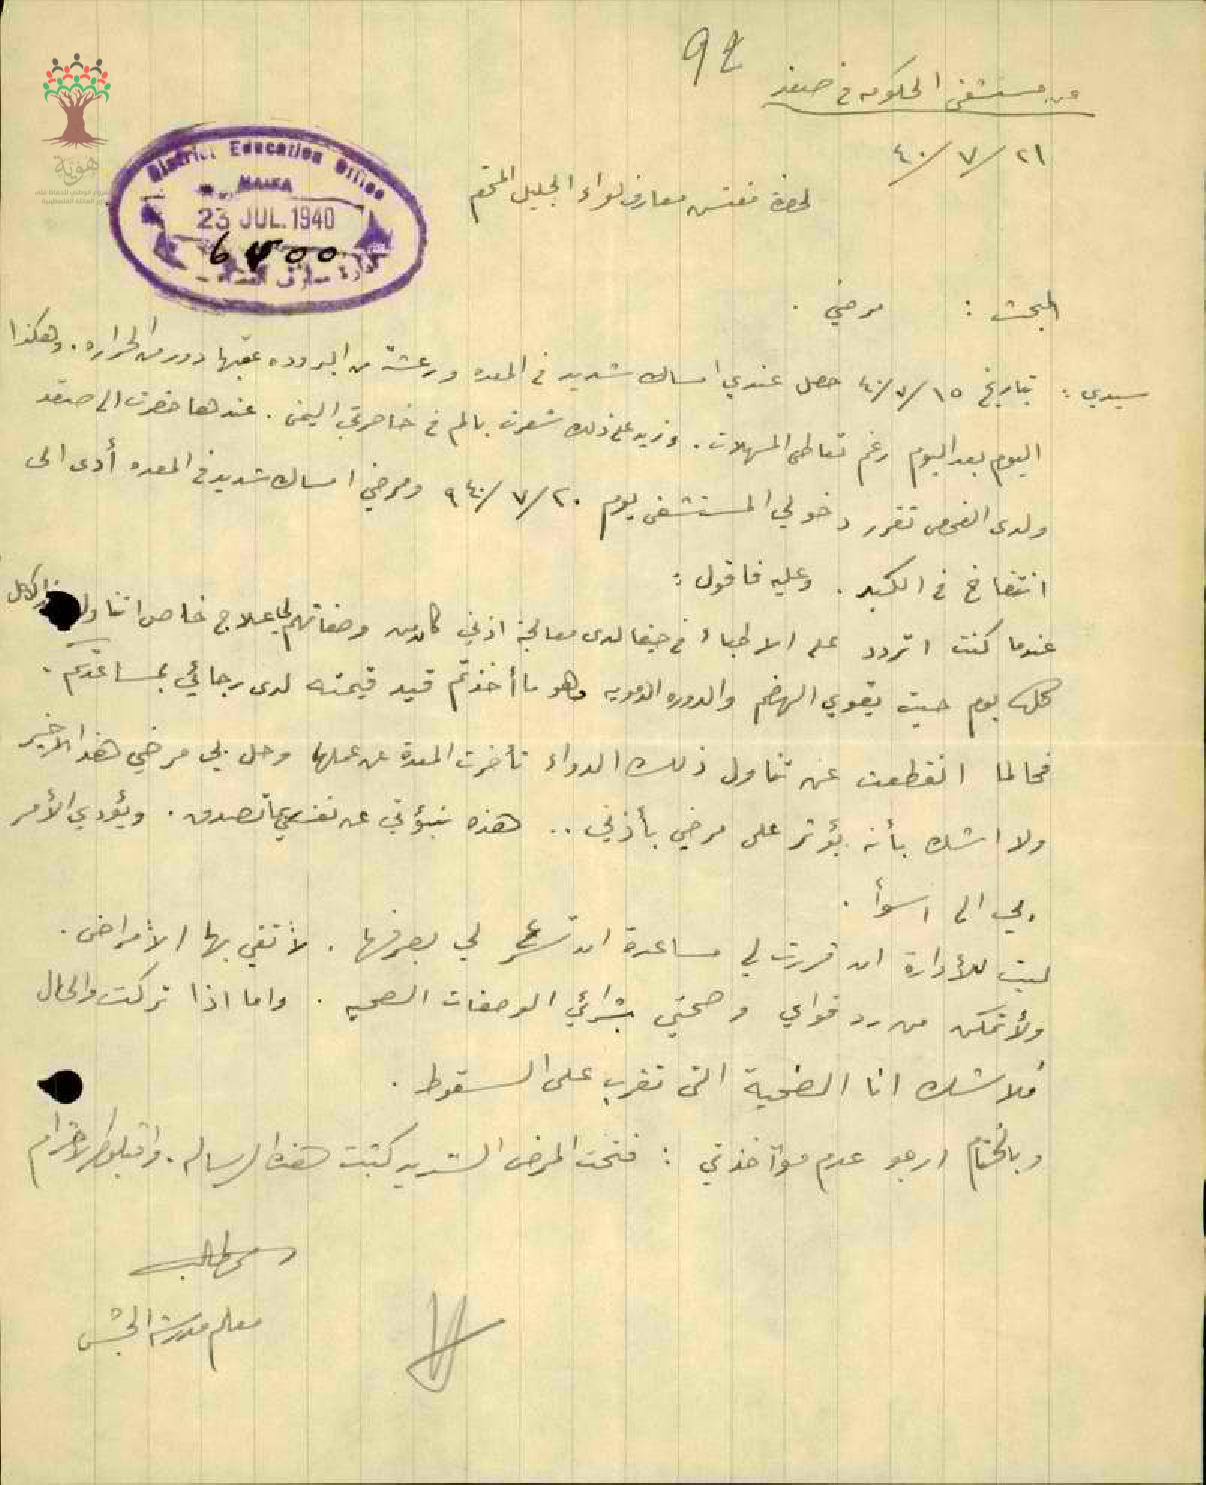 94
من مستشفى الحكومه في صفد
٢١/٧/٤٠
District Education Office
HAIFA
23 JUL. 1940
6400
هوية
لحضرة مفتش معارف لواء الجليل المحترم
البحث : مرضي .
سيدي : بتاريخ ١٥/٧/٤٠ حصل عندي امساك شديد في المعده ورعشة من البروده عقبها دور من الحراره . وهكذا
اليوم بعد اليوم رغم تعاطي المسهلات . وزيد على ذلك شعرت بالم في خاصرتي اليمنى . عندها حضرت الى صفد
ولدى الفحص تقرر دخولي المستشفى يوم ٢٠/٧/٩٤٠ ومرضي امساك شديد في المعده أدى الى
انتفاخ في الكبد . وعليه فاقول :
عندما كنت اتردد على الاطباء في حيفا لدى معالجة اذني كان من وصفاتهم لي علاج خاص اتناوله
كل يوم حيث يقوي الهضم والدوره الدمويه وهو ما أخذتم قيد قيمته لدى رجائي بمساعدتكم .
فحالما انقطعت عن تناول ذلك الدواء تأخرت المعدة عن عملها وحل بي مرضي هذا الاخير
ولا اشك بأنه يؤثر على مرضي بأذني .. هذه نبؤتي عن نفسي تصدق . ويؤدي الأمر
بي الى اسوأ .
ليت للأدارة ان قررت لي مساعدة ان تسرع لي بصرفها . لأتقي بها الأمراض .
ولأتمكن من رد قواي وصحتي بشرائي الوصفات الصحيه . واما اذا تركت والحال
فلا شك انا الضحية التي تقرب على السقوط .
وبالختام ارجو عدم مؤآخذتي : فتحت المرض الشديد كتبت هذه الرساله . واقبلوا الاحترام
معلم مدرسة الجش